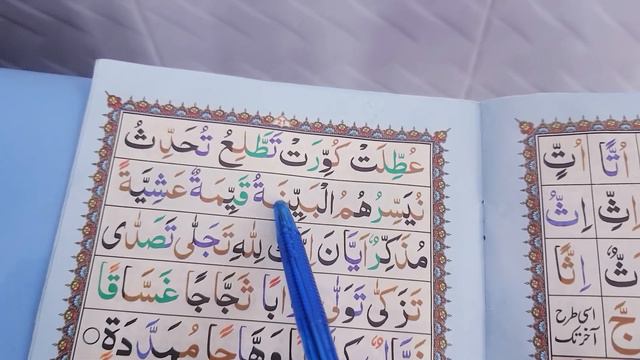 عُطِّلَتْ كُوِّرَتْ تَطَّلِعُ تُحَدِّثُ
نُيَسِّرُ هُمُ الْبَيِّنَةُ قَيِّمَةٌ عَشِيَّةً
مُذَكِّرٌ اَيَّانَ لِلّٰهِ تَجَلّٰى تَصَدّٰى
تَزَكّٰى تَوَلّٰى ثَجَّاجًا غَسَّاقًا
وَهَّاجًا مُمَدَّدَةٍ
اُتًّا اُتٍّ
اِثِّ اِثٌّ
اِثًّا
اسی طرح
آخر تک